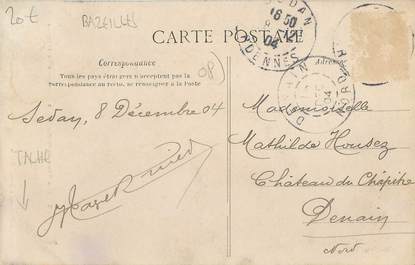 20€
BAZEILLES
SEDAN
16 50
8-12
04
ARDENNES
CARTE POSTALE
Correspondance
Tous les pays étrangers n'acceptent pas la
correspondance au recto, se renseigner à la Poste
Sedan, 8 Décembre 04
DENAIN
04
NORD
Mademoiselle
Mathilde Housez
Château du Chapitre
Denain
Nord
TACHE